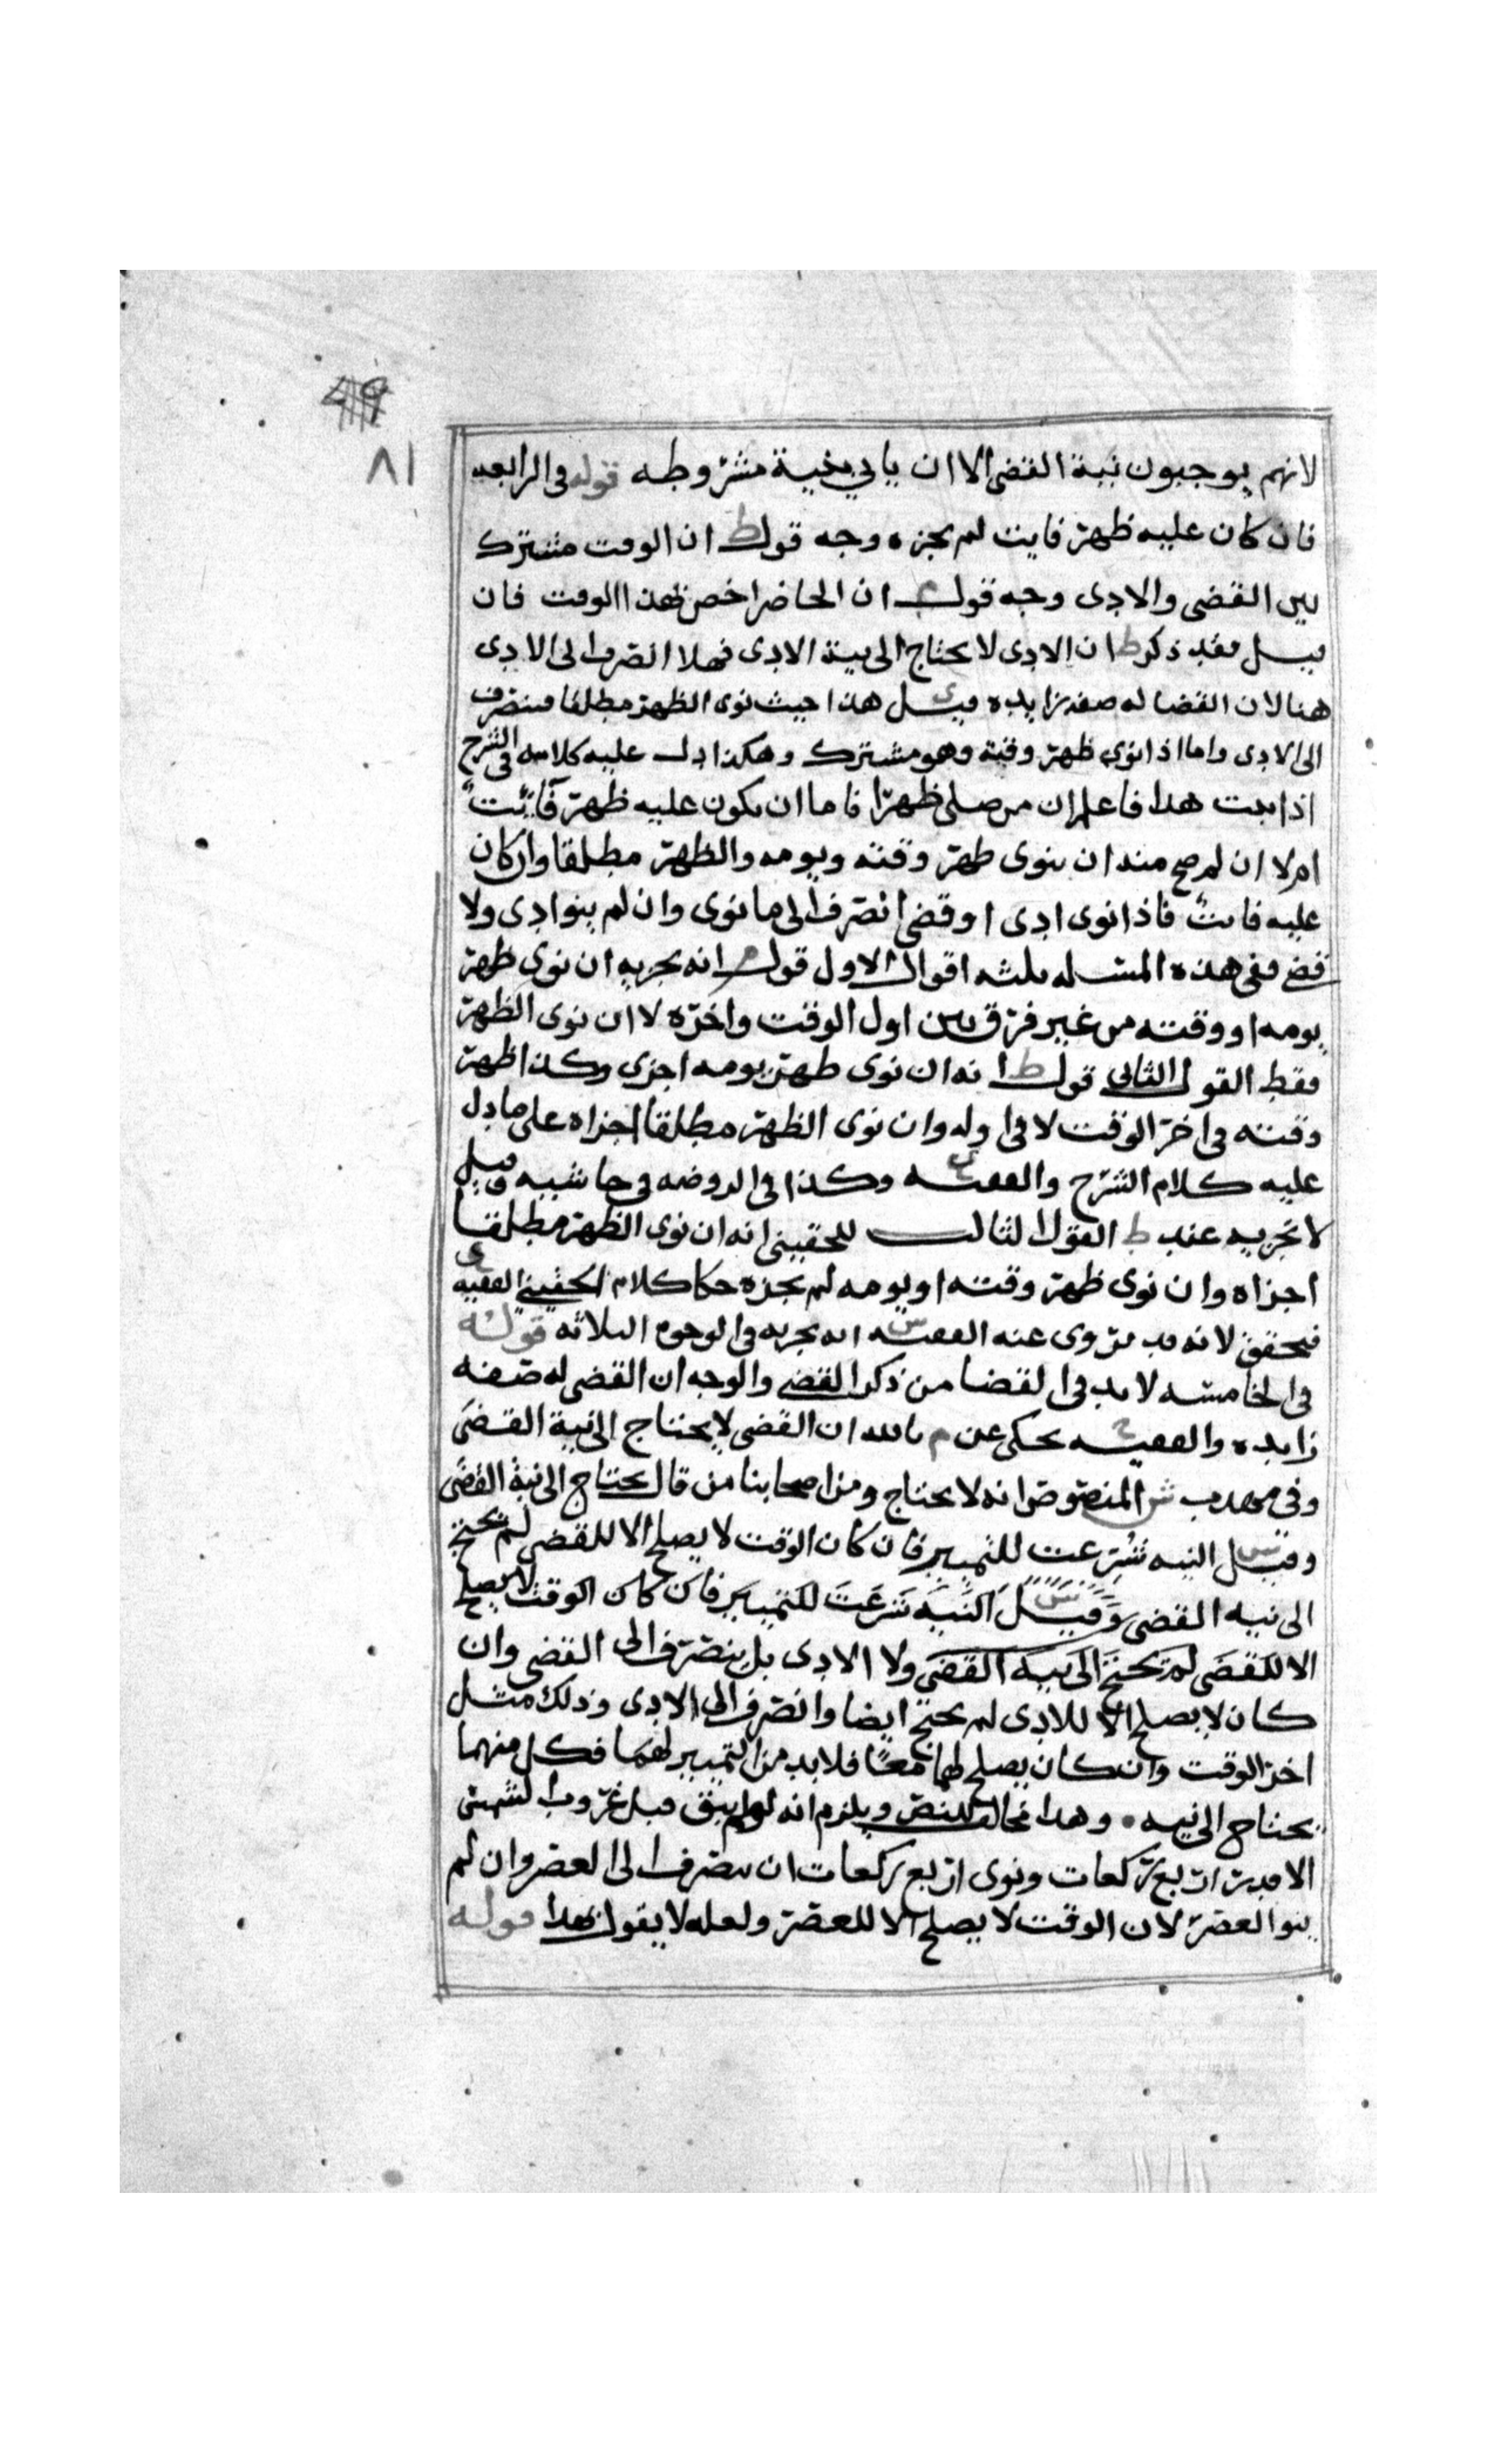 ٤٩
٨١
لانهم يوجبون نية القضى الا ان ياتي بنية مشروطه قوله في الرابعه
فان كان عليه ظهر فايت لم يجزه وجه قول ط ان الوقت مشترك
بين القضى والادى وجه قول ان الحاضر اخص بهذا الوقت فان
قيل فقد ذكر ط ان الادى لا يحتاج الى نية الادى فهلا انصرف الى الادى
هنا لان القضا له صفه زايده قيل هذا حيث نوى الظهر مطلقا فينصرف
الى الادى واما اذا نوى ظهر وقته وهو مشترك وهكذا دل عليه كلامه في الشرح
اذا ثبت هذا فاعلم ان من صلى ظهرا فاما ان يكون عليه ظهر فائت
ام لا ان لم صح منه ان ينوى ظهر وقته ويومه والظهر مطلقا وان كان
عليه فايت فاذا نوى ادى او قضى انصرف الى ما نوى وان لم ينو ادى ولا
قضى ففي هذه المسئله ثلثه اقوال الاول قول م انه يجزيه ان نوى ظهر
يومه او وقته من غير فرق بين اول الوقت واخره لا ان نوى الظهر
فقط القول الثاني قول ط انه ان نوى ظهر يومه اجزى وكذا ظهر
وقته في اخر الوقت لا في اوله وان نوى الظهر مطلقا اجزاه على ما دل
عليه كلام الشرح والفقيه وكذا في الروضه في حاشيه قيل
لا يجزيه عند ط القول الثالث للحقيني انه ان نوى الظهر مطلقا
اجزاه وان نوى ظهر وقته او يومه لم يجزه حكا كلام الحقيني الفقيه ي
فيحقق لانه قد تروى عنه الفقيه س انه يجزيه في الوجوه الثلاثه قوله
في الخامسه لا بد في القضا من ذكر القضى والوجه ان القضى له صفه
زايده والفقيه ح يحكى عن م بالله ان القضى لا يحتاج الى نية القضى
وفي مهذب ش المنصوص انه لا يحتاج ومن اصحابنا من قال يحتاج الى نية القضى
وقيل س النيه شرعت للتمييز فان كان الوقت لا يصلح الا للقضى لم يحتج
الى نيه القضى وقيل س النيه شرعت للتمييز فان كان الوقت لا يصلح
الا للقضى لم يحتج الى نيه القضى ولا الادى بل ينصرف الى القضى وان
كان لا يصلح الا للادى لم يحتج ايضا وانصرف الى الادى وذلك مثل
اخر الوقت وان كان يصلح لهما معًا فلا بد من التمييز لهما فكل منهما
يحتاج الى نيه وهذا مخالف للنص ويلزم انه لو لم يبق قبل غروب الشمس
الا قدر اربع ركعات ونوى اربع ركعات ان ينصرف الى العصر وان لم
ينو العصر لان الوقت لا يصلح الا للعصر ولعله لا يقول بهذا قوله